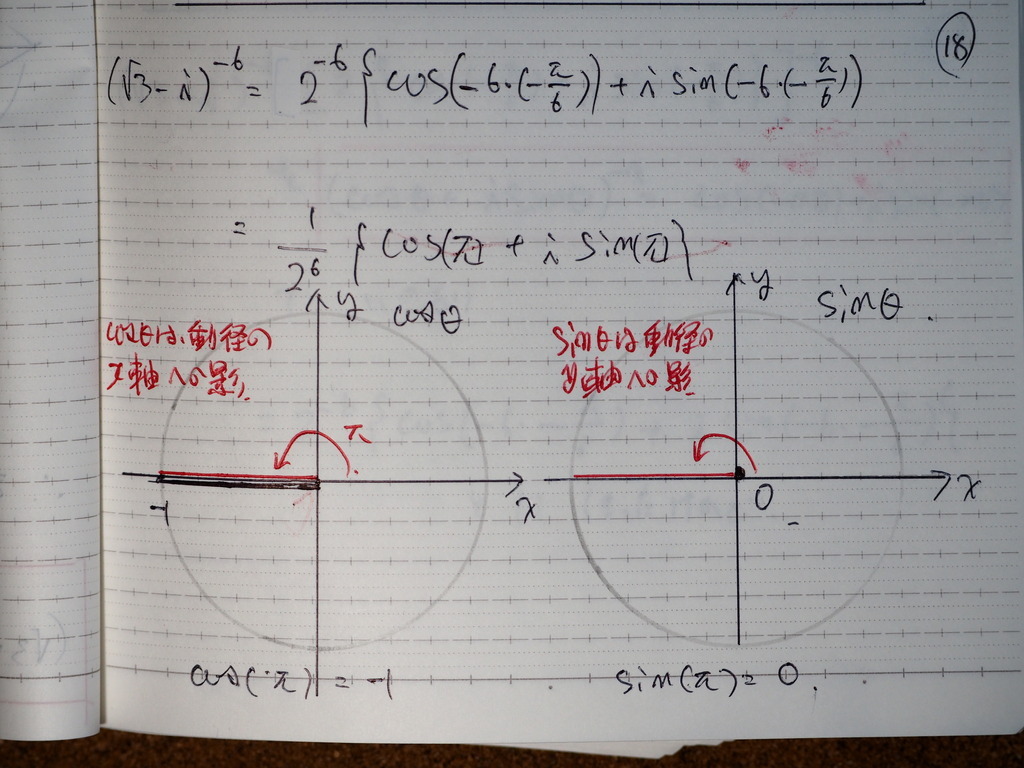 ⑱
(√3 - i)^{-6} = 2^{-6} { cos(-6·(-π/6)) + i sin(-6·(-π/6))
= 1/2^6 { cos(π) + i sin(π) }
y
cosθ
cosθは、動径の
x軸への影
π
-1
x
y
sinθ.
sinθは動径の
y軸への影
0
x
cos(π) = -1
sin(π) = 0.